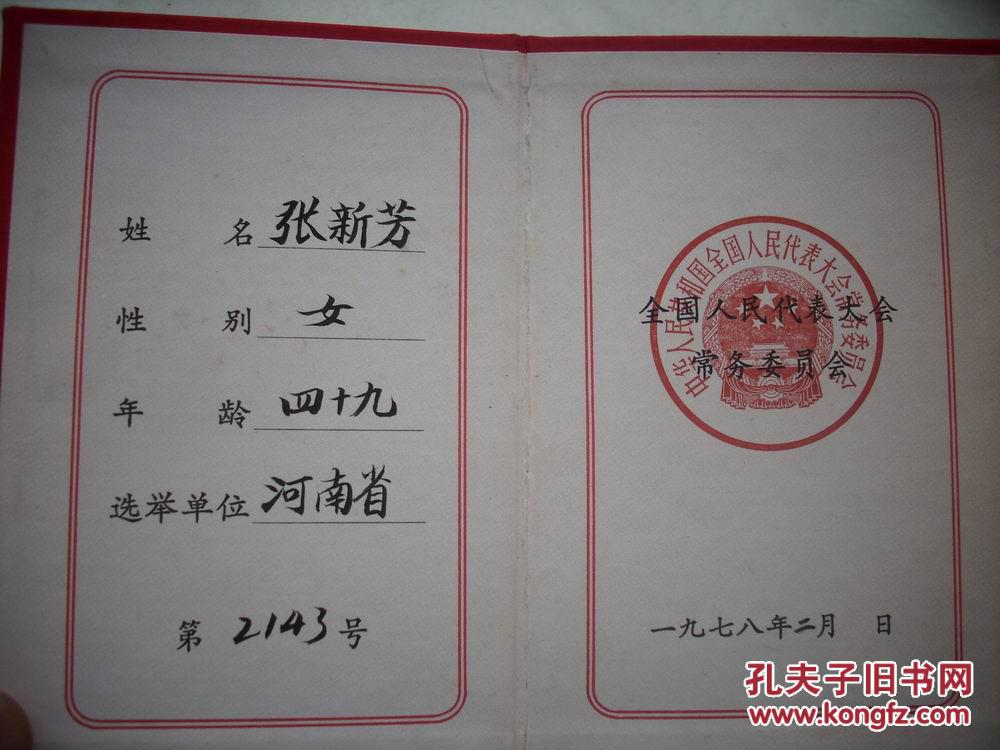 姓名 张新芳
性别 女
年龄 四十九
选举单位 河南省
第 2143 号
中华人民共和国全国人民代表大会常务委员会
全国人民代表大会
常务委员会
一九七八年二月 日
孔夫子旧书网
www.kongfz.com